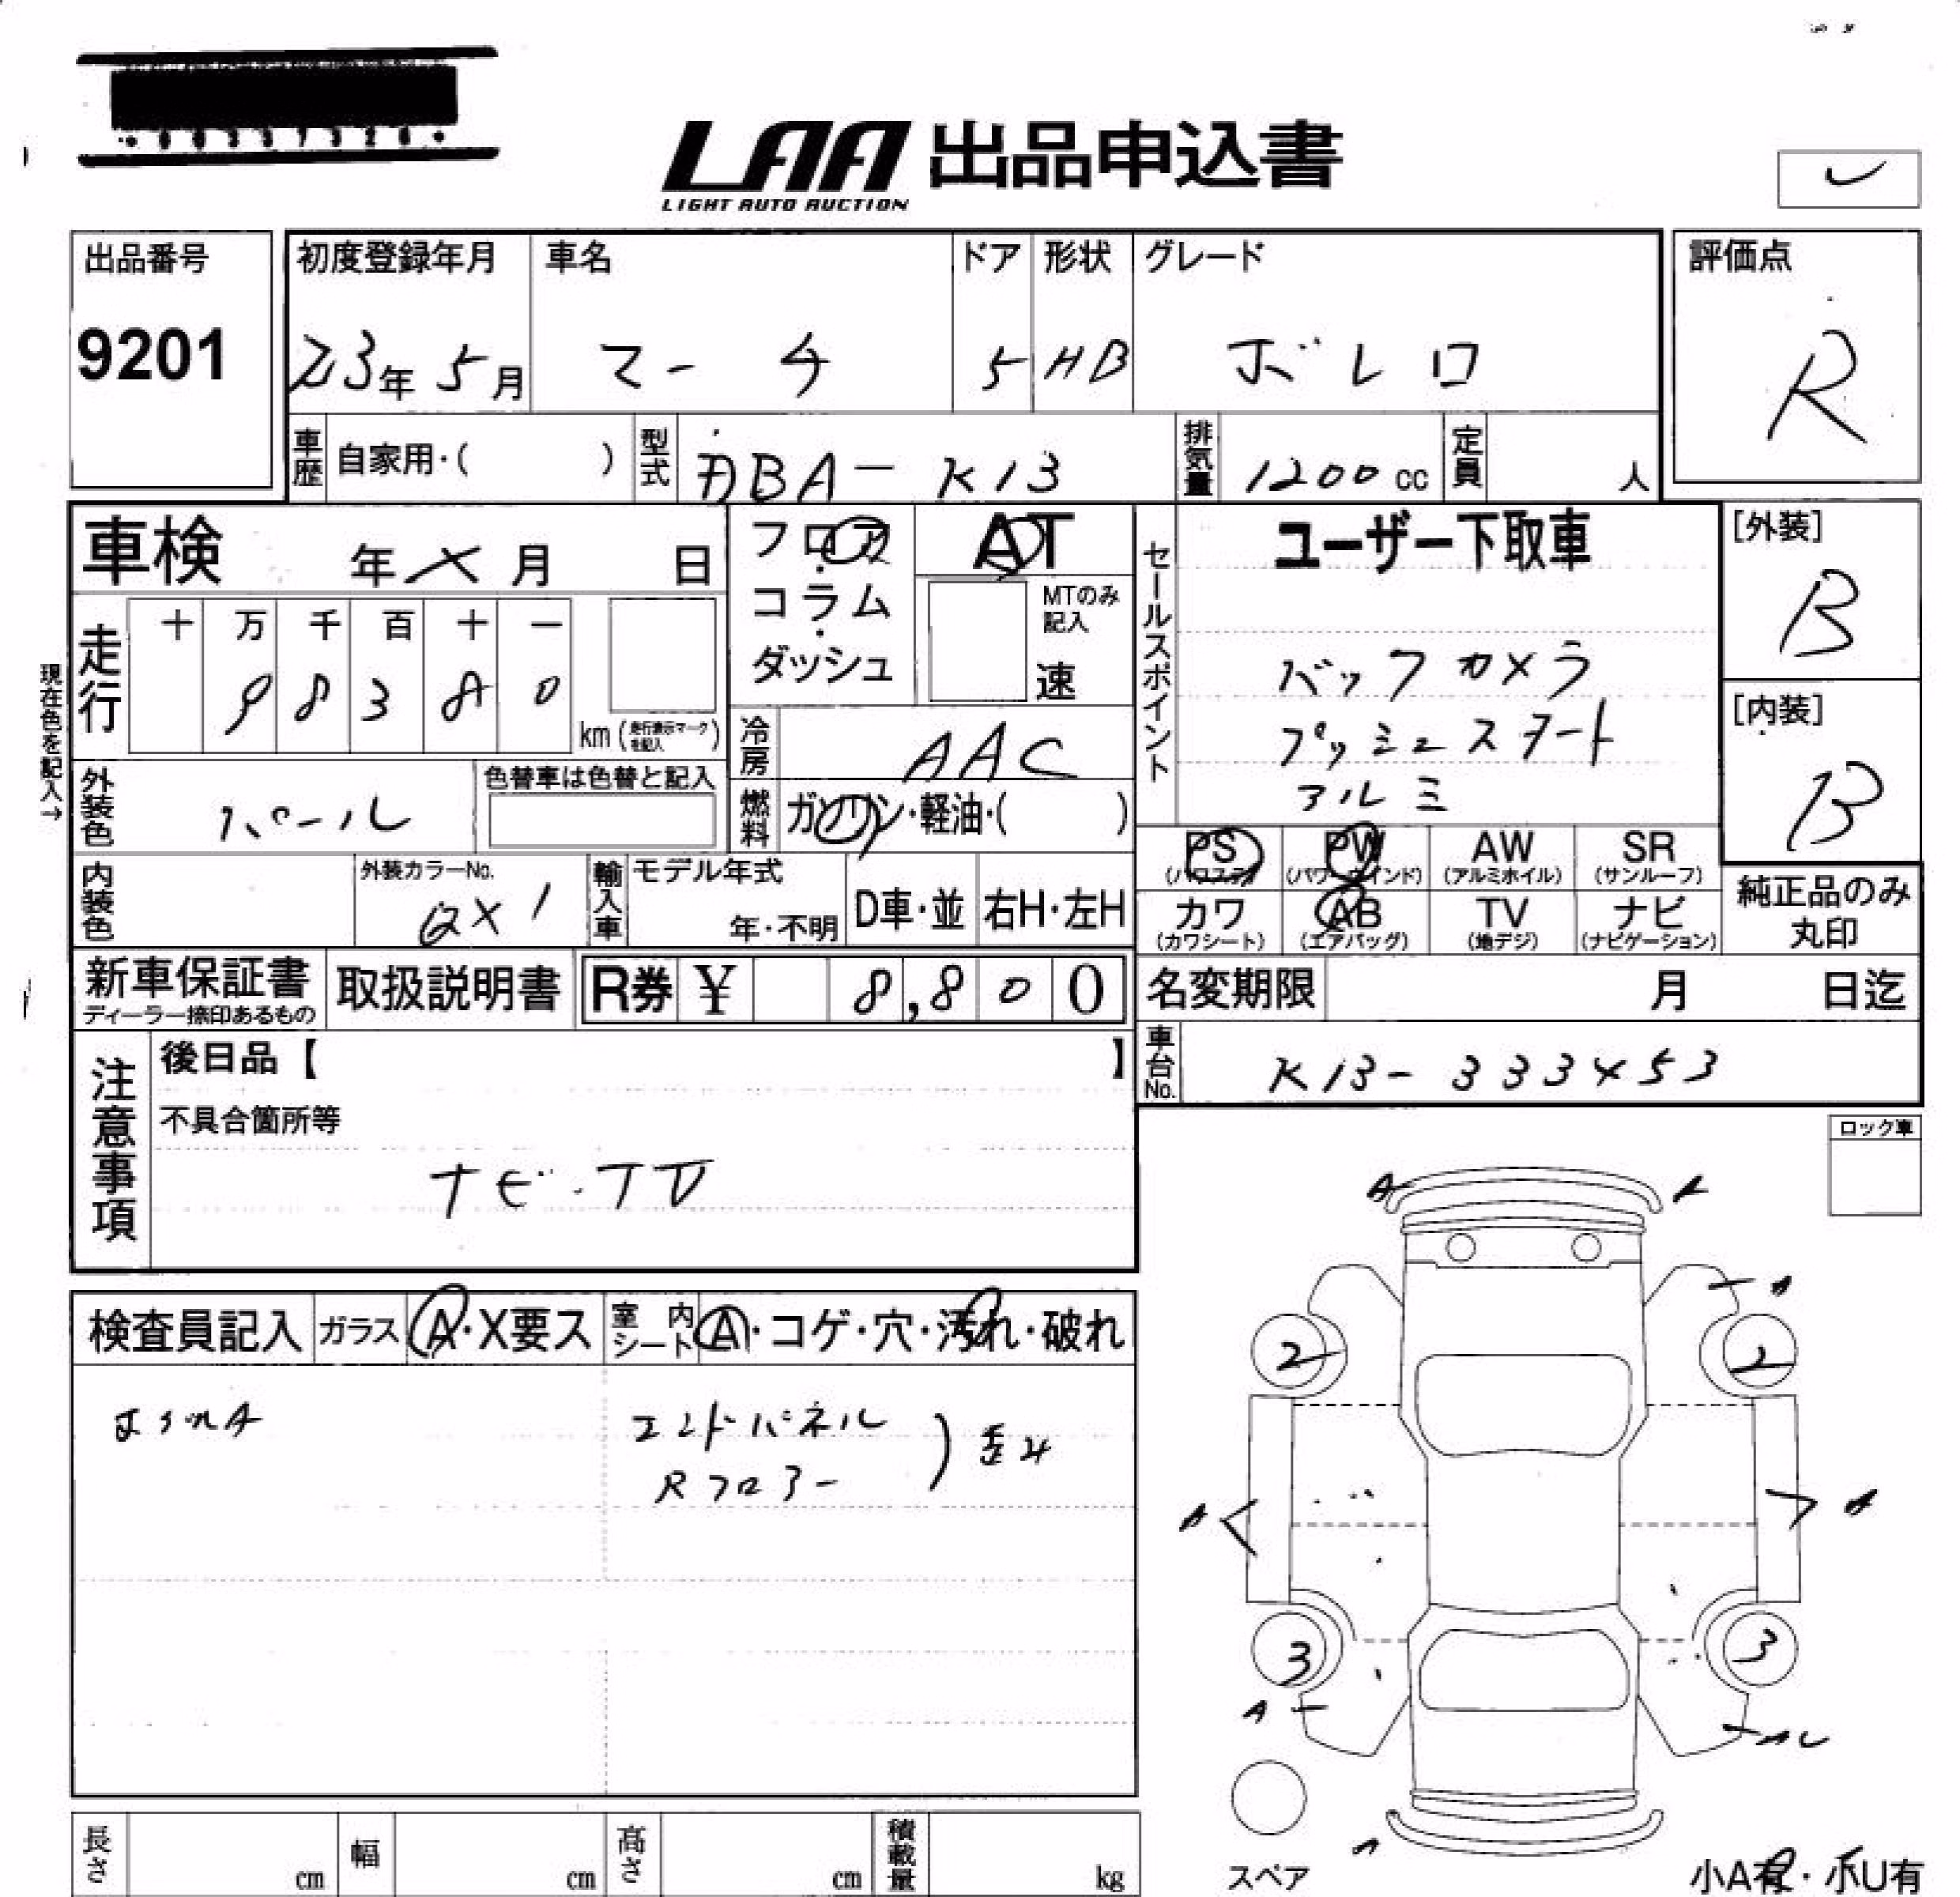 LAA 出品申込書
LIGHT AUTO AUCTION
出品番号
9201
初度登録年月 車名 ドア 形状 グレード
23年5月 マーチ 5 HB ボレロ
評価点
R
車歴 自家用・( ) 型式 DBA-K13 排気量 1200cc 定員 人
車検 年 X 月 日
フロア
コラム
ダッシュ
AT
MTのみ記入
速
セールスポイント
ユーザー下取車
バックカメラ
プッシュスタート
アルミ
[外装]
B
[内装]
B
現在色を記入→
走行 十 万 千 百 十 一
98380
km (走行表示マークを記入)
冷房 AAC
外装色 パール
色替車は色替と記入
燃料 ガソリン・軽油・( )
内装色
外装カラーNo.
QX1
輸入車 モデル年式
年・不明
D車・並 右H・左H
PS (パワステ) PW (パワーウインド) AW (アルミホイル) SR (サンルーフ)
カワ (カワシート) AB (エアバッグ) TV (地デジ) ナビ (ナビゲーション)
純正品のみ
丸印
新車保証書
ディーラー捺印あるもの
取扱説明書
R券 ¥ 8,800
名変期限 月 日迄
車台No. K13-333453
注意事項
後日品【 】
不具合箇所等
ナビ・TV
ロック車
検査員記入 ガラス A・X要ス 室内シート A・コゲ・穴・汚れ・破れ
エンドパネル
Rフロアー
) 歪み
A
A
A
2 2
A A
3 3
A
A
スペア
小A有・小U有
長さ cm 幅 cm 高さ cm 積載量 kg